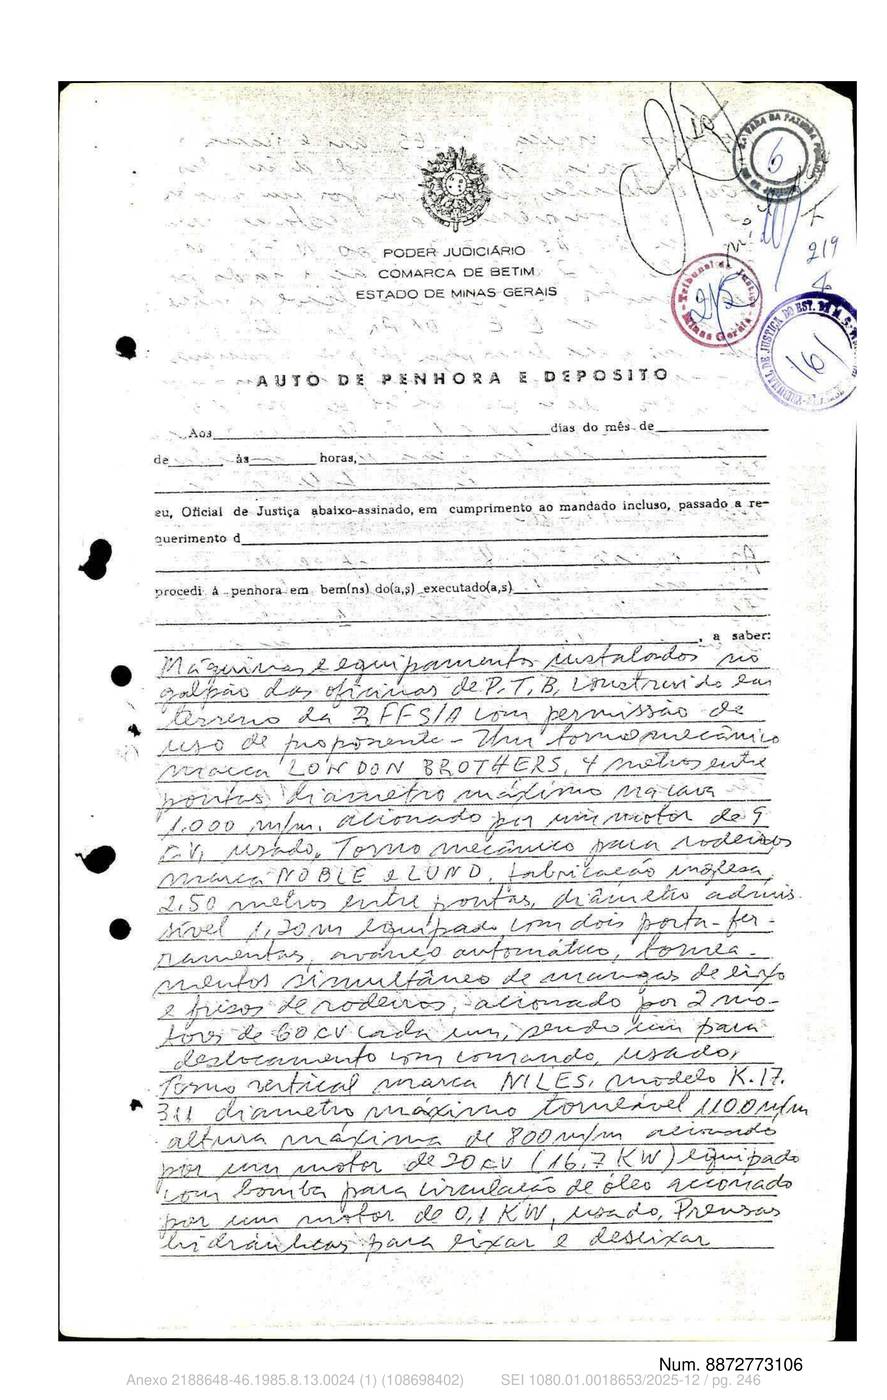 6
219
Tribunal de Justiça
Minas Gerais
212
161
PODER JUDICIÁRIO
COMARCA DE BETIM
ESTADO DE MINAS GERAIS
AUTO DE PENHORA E DEPOSITO
Aos dias do mês de
de às horas,
eu, Oficial de Justiça abaixo-assinado, em cumprimento ao mandado incluso, passado a re-
querimento d
procedi à penhora em bem(ns) do(a,s) executado(a,s)
, a saber:
Máquinas e equipamentos instalados no
galpão das oficinas de P.T.B, construído em
terreno da RFFS/A com permissão de
uso de proponente - Um torno mecânico
marca LONDON BROTHERS, 4 metros entre
pontas diametro máximo na cava
1.000 m/m, acionado por um motor de 9
C.V, usado, Torno mecânico para rodeiros
marca NOBLE e LUND, fabricação inglesa,
2,50 metros entre pontas, diâmetro admis-
sível 1,20 m equipado com dois porta-fer-
ramentas, avanço automático, tornea-
mentos simultâneo de mangas de eixo
e frisos de rodeiros, acionado por 2 mo-
tores de 60 cv cada um, sendo um para
deslocamento com comando, usado,
Torno vertical marca NILES, modelo K.17.
311 diametro máximo torneável 1100 m/m
altura máxima de 800 m/m acionado
por um motor de 20 cv (16,7 KW) equipado
com bomba para circulação de óleo accionado
por um motor de 0,1 KW, usado, Prensas
hidráulicas para eixar e deseixar
Num. 8872773106
Anexo 2188648-46.1985.8.13.0024 (1) (108698402) SEI 1080.01.0018653/2025-12 / pg. 246